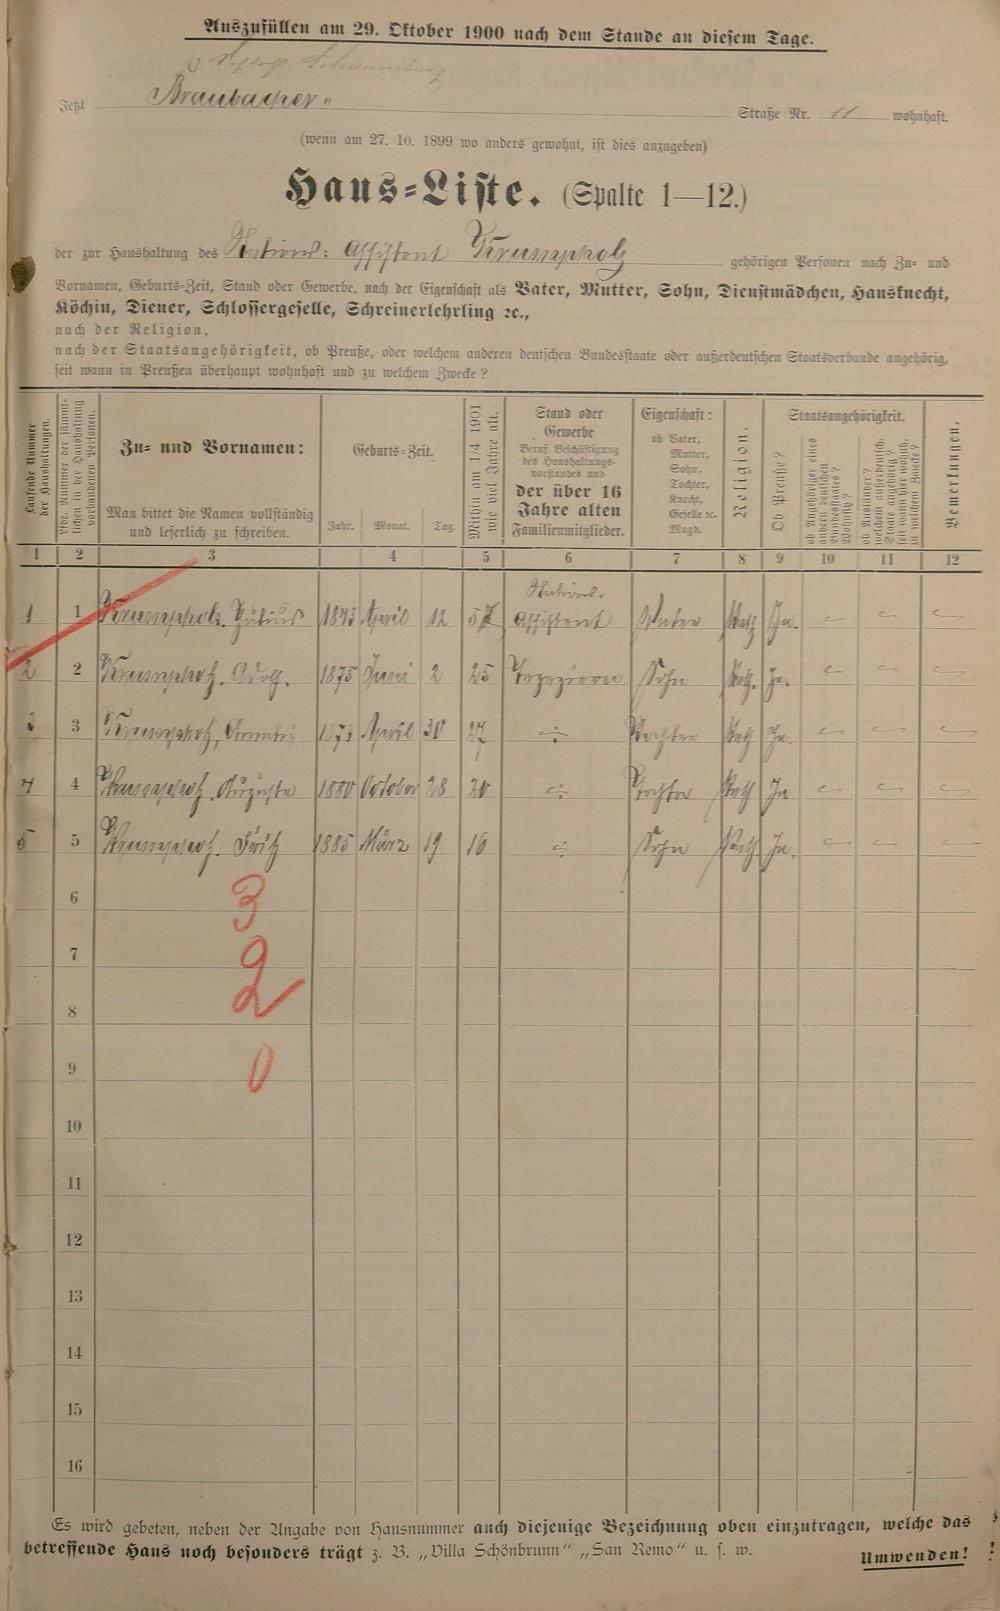 Auszufüllen am 29. Oktober 1900 nach dem Stande an diesem Tage.
Schaumburg
Jetzt Braubacher" Straße Nr. 11 wohnhaft.
(wenn am 27. 10. 1899 wo anders gewohnt, ist dies anzugeben)
Haus-Liste. (Spalte 1—12.)
der zur Haushaltung des Stations: Assistent Krumpholz gehörigen Personen nach Zu- und
Vornamen, Geburts-Zeit, Stand oder Gewerbe, nach der Eigenschaft als Vater, Mutter, Sohn, Dienstmädchen, Hausknecht,
Köchin, Diener, Schlossergeselle, Schreinerlehrling ꝛc.,
nach der Religion,
nach der Staatsangehörigkeit, ob Preuße, oder welchem anderen deutschen Bundesstaate oder außerdeutschen Staatsverbande angehörig,
seit wann in Preußen überhaupt wohnhaft und zu welchem Zwecke?
Laufende Nummer
der Haushaltungen.
Lfde. Nummer der sämmt-
lichen in der Haushaltung
vorhandenen Personen.
Zu- und Vornamen:
Man bittet die Namen vollständig
und leserlich zu schreiben.
Geburts-Zeit.
Jahr. Monat. Tag.
Mithin am 1/4 1901
wie viel Jahre alt.
Stand oder
Gewerbe
Beruf Beschäftigung
des Haushaltungs-
vorstandes und
der über 16
Jahre alten
Familienmitglieder.
Eigenschaft:
ob Vater,
Mutter,
Sohn,
Tochter,
Knecht,
Geselle ꝛc.
Magd.
Religion.
Staatsangehörigkeit.
Ob Preuße?
ob Angehöriger eines
andern deutschen
Bundesstaates?
Wohnsitz?
ob Ausländer?
welchem außerdeutsch.
Staate angehörig?
seit wann hier wohnh.
zu welchem Zwecke?
Bemerkungen.
1 2 3 4 5 6 7 8 9 10 11 12
1 1 Krumpholz. Julius 1843 April 12 57 Station. Assistent Vater Kath Ja.
2 2 Krumpholz. Adolf. 1875 Juni 2 25 Tapezierer Sohn Kath. Ja.
3 3 Krumpholz, April 30 27 Tochter Kath Ja.
4 4 Krumpholz. Auguste 1880 October 28 20 Tochter Kath Ja
5 5 Krumpholz. Fritz 1885 März 19 16 Sohn Kath. Ja.
6
3
7
2
8
9
0
10
11
12
13
14
15
16
Es wird gebeten, neben der Angabe von Hausnummer auch diejenige Bezeichnung oben einzutragen, welche das
betreffende Haus noch besonders trägt z. B. „Villa Schönbrunn" „San Remo" u. s. w.
Umwenden!